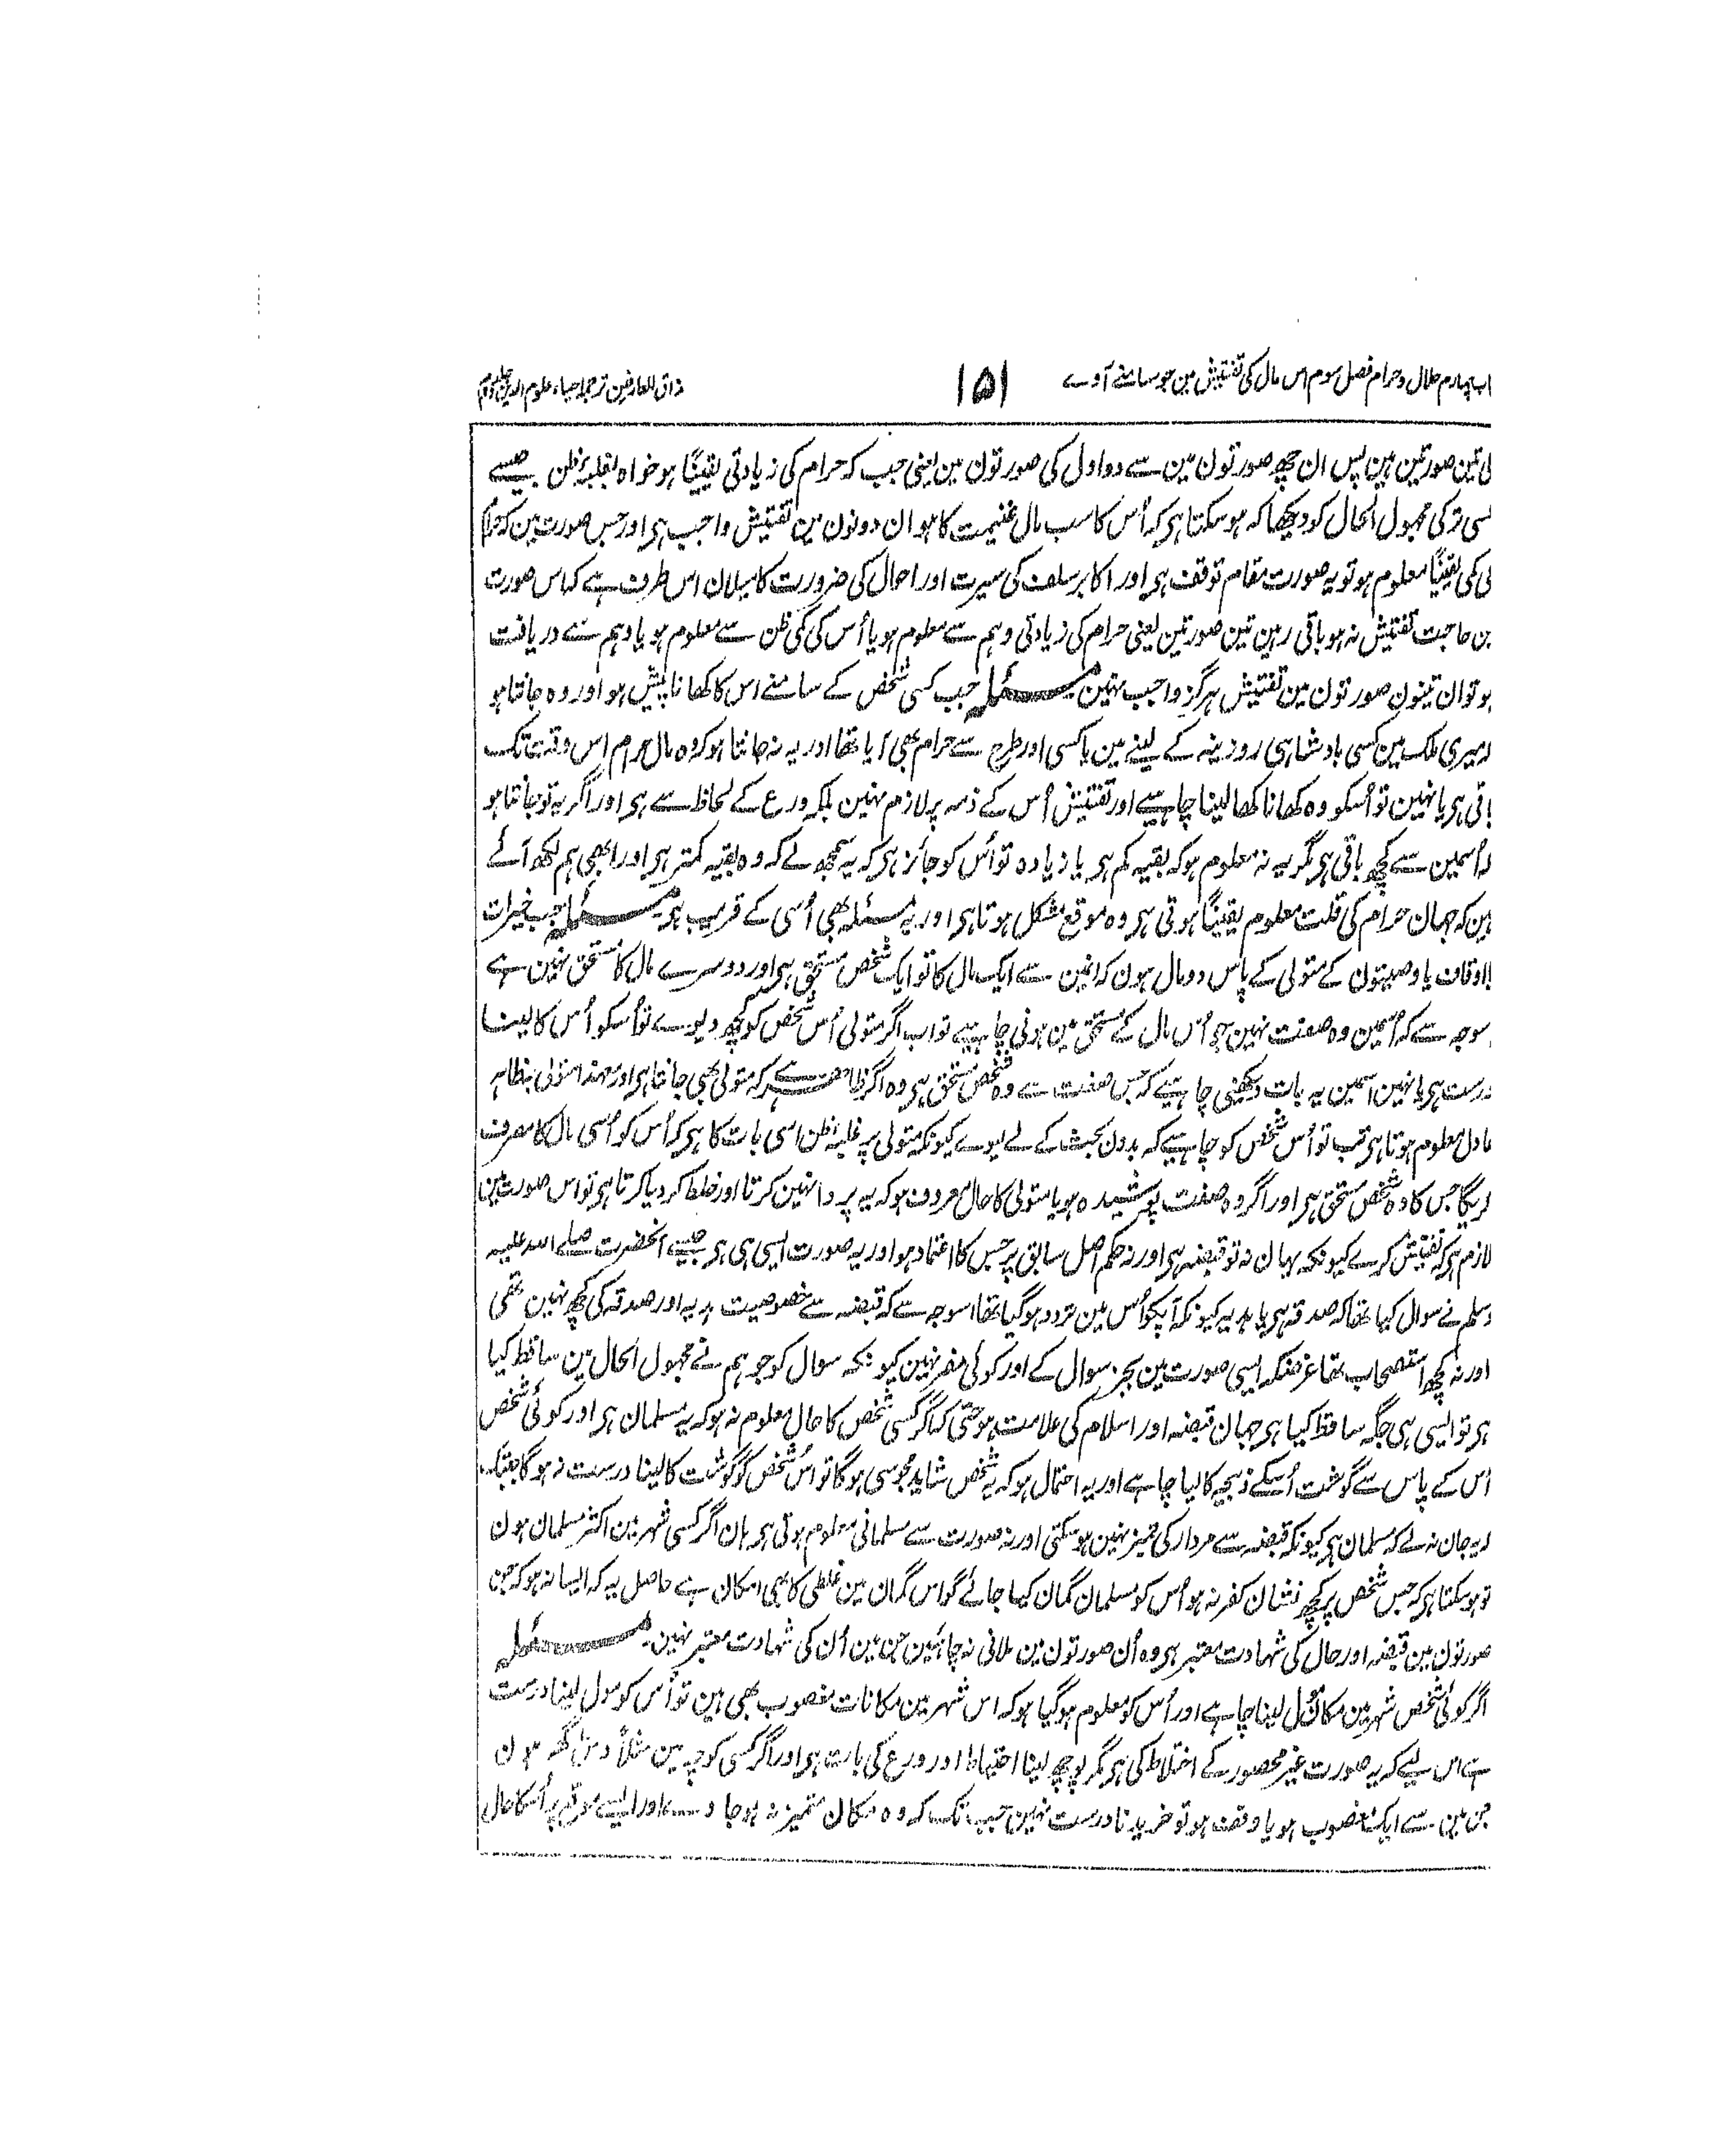 اب چہارم حلال و حرام فصل سوم اس مال کی تفتیش مین جو سامنے آوے
۱۵۱
ذاق العارفین ترجمہ احیاء علوم الدین جلد دوم
لی تین صورتین ہین پس ان چھ صورتون مین سے دو اول کی صورتون مین یعنی جب کہ حرام کی زیادتی یقیناً ہو خواہ بغلبۂ ظن جیسے
سی ترکی مجہول الحال کو دیکھا کہ ہو سکتا ہی کہ اُس کا سب مال غنیمت کا ہو ان دونون مین تفتیش واجب ہی اور جس صورت مین کہ حرام
لی کمی یقیناً معلوم ہو تو یہ صورت مقام توقف ہی اور اکابر سلف کی سیرت اور احوال کی ضرورت کا میلان اس طرف ہے کہ اس صورت
ین حاجت تفتیش نہ ہو باقی رہین تین صورتین یعنی حرام کی زیادتی وہم سے معلوم ہو یا اُس کی کمی ظن سے معلوم ہو یا وہم سے دریافت
ہو تو ان تینون صورتون مین تفتیش ہرگز واجب نہین مسئلہ جب کسی شخص کے سامنے اس کا کھانا پیش ہو اور وہ جانتا ہو
کہ میری ملک مین کسی بادشاہی روزینہ کے لینے مین یا کسی اور طرح سے حرام بھی آیا تھا اور یہ نہ جانتا ہو کہ وہ مال حرام اس وقت تک
باقی ہی یا نہین تو اُسکو وہ کھانا کھا لینا چاہیے اور تفتیش اُس کے ذمہ پر لازم نہین بلکہ ورع کے لحاظ سے ہی اور اگر یہ تو جانتا ہو
کہ اُسمین سے کچھ باقی ہی مگر یہ نہ معلوم ہو کہ بقیہ کم ہی یا زیادہ تو اُس کو جائز ہی کہ یہ سمجھ لے کہ وہ بقیہ کمتر ہی اور ابھی ہم لکھ آئے
ہین کہ جہان حرام کی قلت معلوم یقیناً ہوتی ہی وہ موقع مشکل ہوتا ہی اور یہ مسئلہ بھی اُسی کے قریب ہی مسئلہ جب خیرات
یا اوقاف یا وصیتون کے متولی کے پاس دو مال ہون کہ انمین سے ایک مال کا تو ایک شخص مستحق ہی اور دوسرے مال کا مستحق نہین ہے
سوجہ سے کہ اُسمین وہ صفت نہین جو اُس مال کے مستحق مین ہونی چاہیے تو اب اگر متولی اُس شخص کو کچھ دیوے تو اُسکو اُس کا لینا
درست ہی یا نہین اسمین یہ بات دیکھنی چاہیے کہ جس صفت سے وہ شخص مستحق ہی وہ اگر ظاہر ہے کہ متولی بھی جانتا ہی اور معہذا متولی بظاہر
عادل معلوم ہوتا ہی تب تو اُس شخص کو چاہیے کہ بدون بحث کے لے لیوے کیونکہ متولی پر غلبہ ظن اسی بات کا ہی کہ اُس کو اُسی مال کا مصرف
کریگا جس کا وہ شخص مستحق ہی اور اگر وہ صفت پوشیدہ ہو یا متولی کا حال معروف ہو کہ یہ پروا نہین کرتا اور خلط کر دیا کرتا ہی تو اس صورت مین
لازم ہی کہ تفتیش کرے کیونکہ یہان نہ تو قبضہ ہی اور نہ حکم اصل سابق پر جس کا اعتماد ہو اور یہ صورت ایسی ہی ہی جیسے آنحضرت صلے اللہ علیہ
وسلم نے سوال کیا تھا کہ صدقہ ہی یا ہدیہ کیونکہ آپکو اُس مین تردد ہو گیا تھا اسوجہ سے کہ قبضہ سے خصوصیت ہدیہ اور صدقہ کی کچھ نہین تھی
اور نہ کچھ استصحاب تھا غرضکہ ایسی صورت مین بجز سوال کے اور کوئی مفر نہین کیونکہ سوال کو جو ہم نے مجہول الحال مین ساقط کیا
ہی تو ایسی ہی جگہ ساقط کیا ہی جہان قبضہ اور اسلام کی علامت ہو حتی کہ اگر کسی شخص کا حال معلوم نہ ہو کہ یہ مسلمان ہی اور کوئی شخص
اُس کے پاس سے گوشت اُسکے ذبیحہ کا لیا چاہے اور یہ احتمال ہو کہ یہ شخص شاید مجوسی ہو گا تو اُس شخص کو گوشت کا لینا درست نہ ہو گا جبتک
کہ یہ جان نہ لے کہ مسلمان ہی کیونکہ قبضہ سے مردار کی تمیز نہین ہو سکتی اور نہ صورت سے مسلمانی معلوم ہوتی ہی ہان اگر کسی شہر مین اکثر مسلمان ہون
تو ہو سکتا ہی کہ جس شخص پر کچھ نشان کفر نہ ہو اُس کو مسلمان گمان کیا جائے گو اس گمان مین غلطی کا بھی امکان ہے حاصل یہ کہ ایسا نہ ہو کہ جن
صورتون مین قبضہ اور حال کی شہادت معتبر ہی وہ اُن صورتون مین ملانی نہ چاہئین جن مین اُن کی شہادت معتبر نہین مسئلہ
اگر کوئی شخص شہر مین مکان مول لینا چاہے اور اُس کو معلوم ہو گیا ہو کہ اس شہر مین مکانات مغصوب بھی ہین تو اُس کو مول لینا درست
ہے اس لیے کہ یہ صورت غیر محصور کے اختلاط کی ہی مگر پوچھ لینا احتیاط اور ورع کی بات ہی اور اگر کسی کوچہ مین مثلاً دس گھر ہون
جن مین سے ایک مغصوب ہو یا وقف ہو تو خریدنا درست نہین جب تک کہ وہ مکان متمیز نہ ہو جاوے اور ایسے موقع پر اُسکا حال